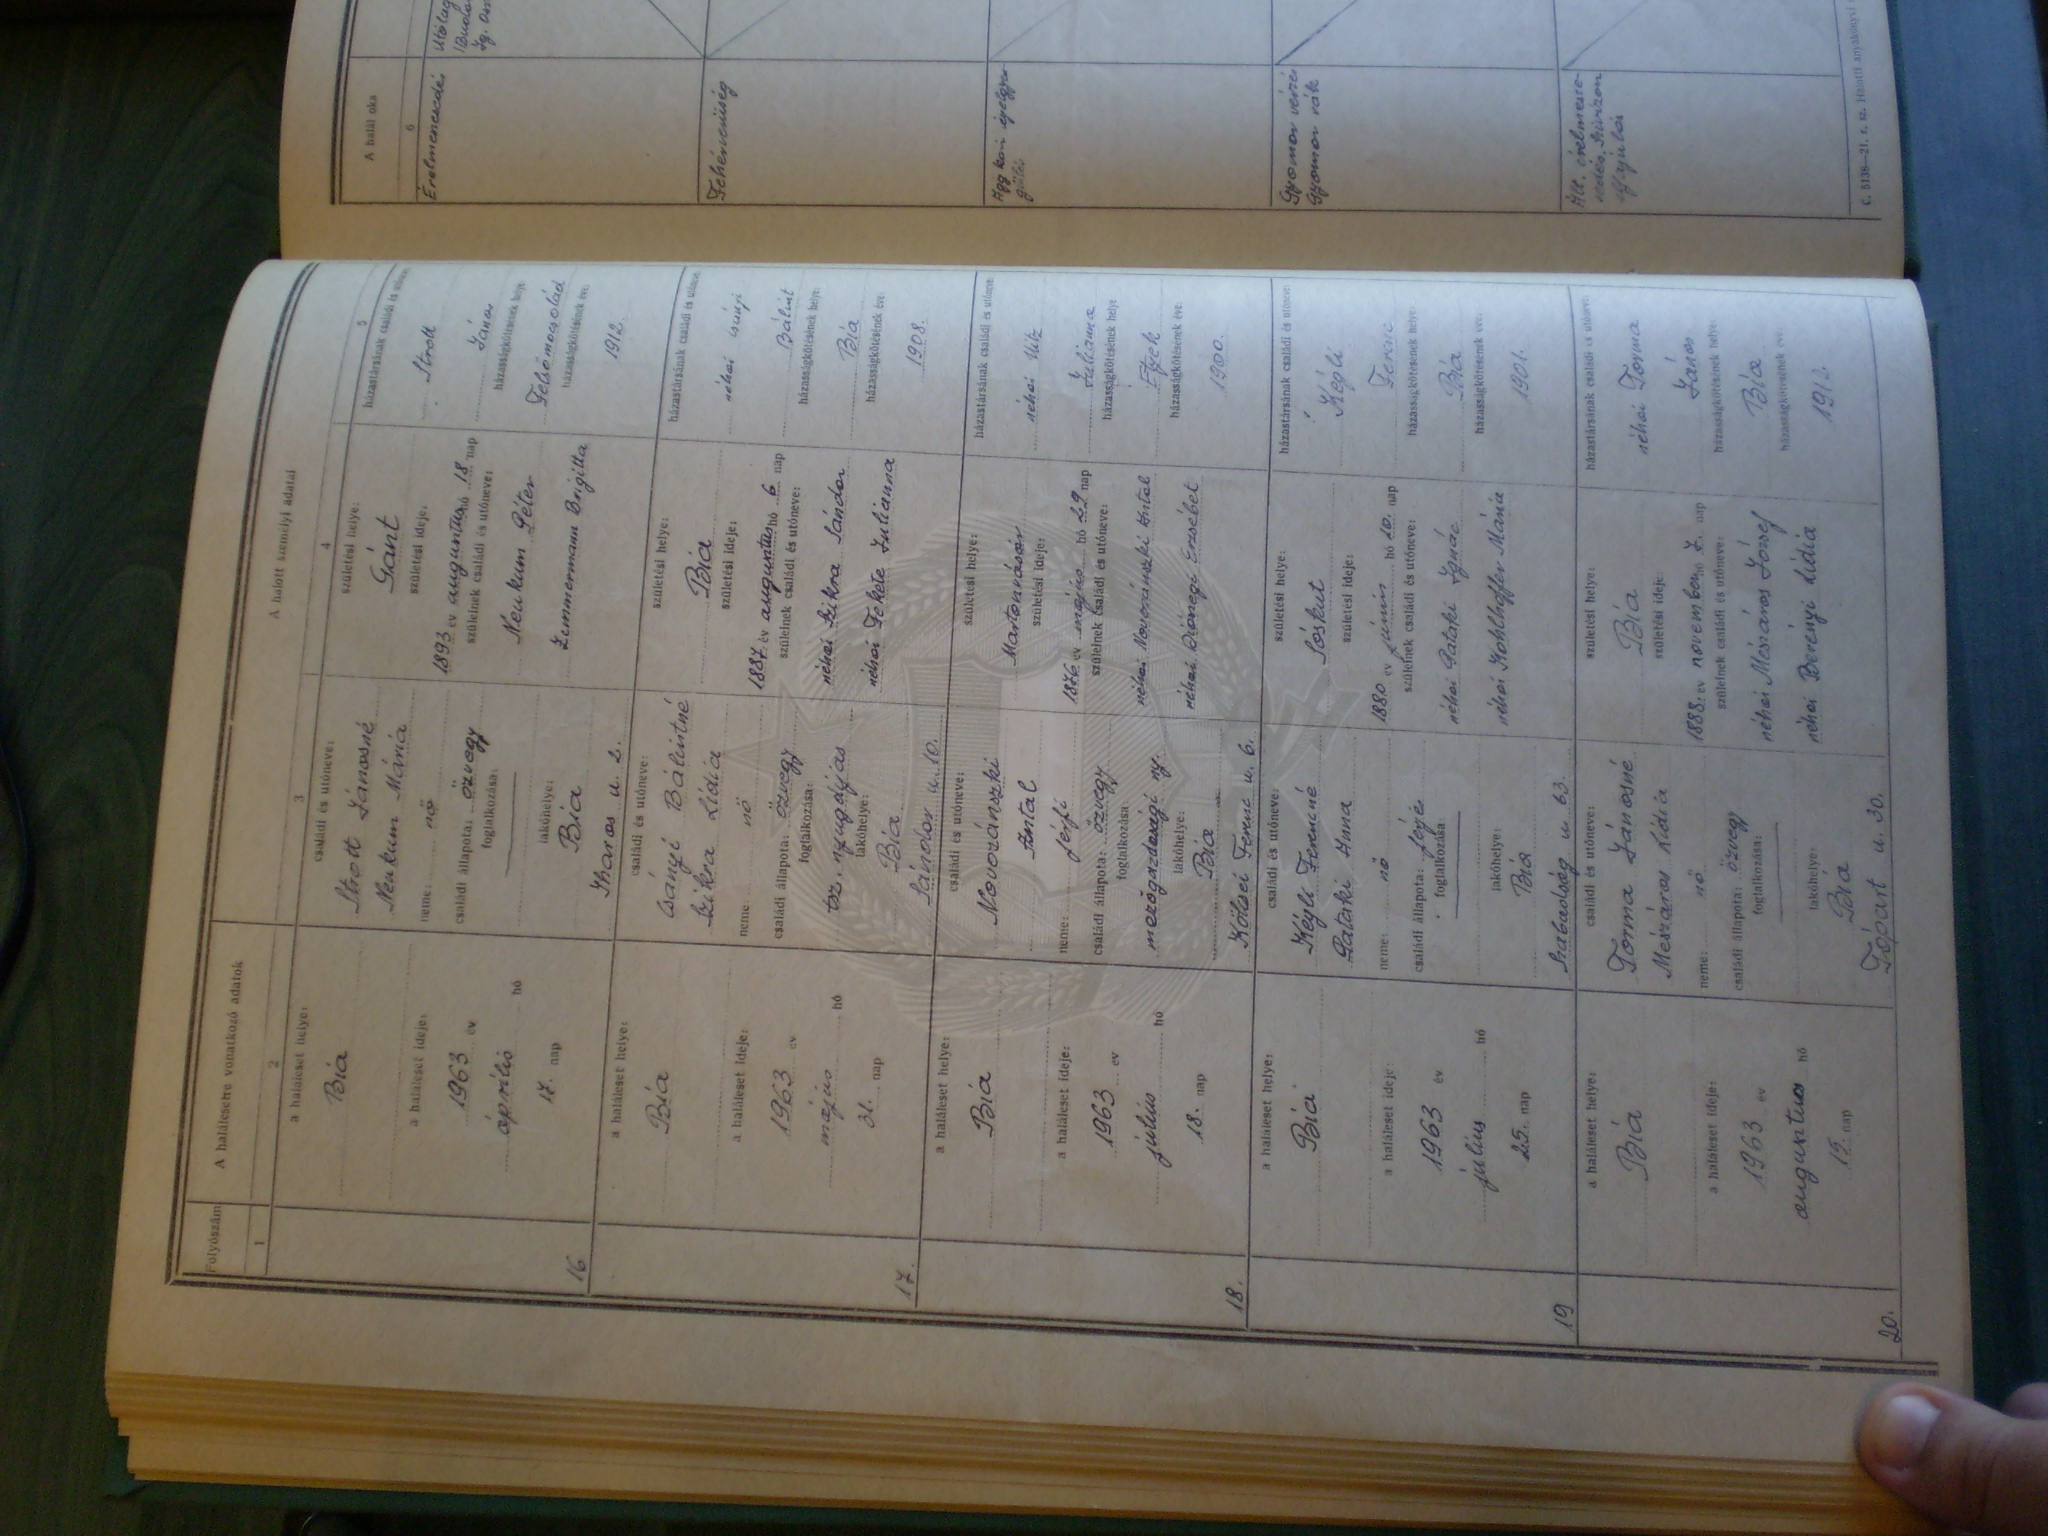 Folyószám
A halálesetre vonatkozó adatok
A halott személyi adatai
1
2
3
4
5
a haláleset helye:
Bia
a haláleset ideje:
1963 év
április hó
17. nap
16
családi és utóneve:
Strott Jánosné
Neukum Mária
neme: nő
családi állapota: özvegy
foglalkozása:
lakóhelye:
Bia
Iharos u. 2.
születési helye:
Gánt
születési ideje:
1893 év augusztus hó 18 nap
szüleinek családi és utóneve:
Neukum Péter
Zimmermann Brigitta
házastársának családi és utóneve:
Strott
János
házasságkötésének helye:
Felsőmocsolád
házasságkötésének éve:
1912.
a haláleset helye:
Bia
a haláleset ideje:
1963 év
május hó
31. nap
17.
családi és utóneve:
Csányi Bálintné
Szikra Lídia
neme: nő
családi állapota: özvegy
foglalkozása:
tsz. nyugdíjas
lakóhelye:
Bia
Sándor u. 10.
születési helye:
Bia
születési ideje:
1887. év augusztus hó 6 nap
szüleinek családi és utóneve:
néhai Szikra Sándor
néhai Fekete Julianna
házastársának családi és utóneve:
néhai Csányi
Bálint
házasságkötésének helye:
Bia
házasságkötésének éve:
1908.
a haláleset helye:
Bia
a haláleset ideje:
1963 év
július hó
18. nap
18.
családi és utóneve:
Novoránszki
Antal
neme: férfi
családi állapota: özvegy
foglalkozása
mezőgazdasági ny.
lakóhelye:
Bia
Kölcsei Ferenc u. 6.
születési helye:
Martonvásár
születési ideje:
1876 év május hó 29 nap
szüleinek családi és utóneve:
néhai Novoránszki Antal
néhai Diónegi Erzsébet
házastársának családi és utóneve:
néhai
Julianna
házasságkötésének helye
Etyek
házasságkötésének éve:
1900.
a haláleset helye:
Bia
a haláleset ideje:
1963 év
július hó
25. nap
19
családi és utóneve:
Kégli Ferencné
Pataki Anna
neme: nő
családi állapota: férjes
foglalkozása
lakóhelye:
Bia
Szabadság u. 63.
születési helye:
Sóskut
születési ideje:
1880 év június hó 20. nap
szüleinek családi és utóneve:
néhai Pataki Ignác
néhai Kohlhoffer Mária
házastársának családi és utóneve:
Kégli
Ferenc
házasságkötésének helye:
Bia
házasságkötésének éve:
1901.
a haláleset helye:
Bia
a haláleset ideje:
1963 év
augusztus hó
15. nap
20.
családi és utóneve:
Torma Jánosné
Mészáros Lídia
neme: nő.
családi állapota: özvegy
foglalkozása:
lakóhelye:
Bia
Tópart u. 30.
születési helye:
Bia
születési ideje:
1888. év november hó 7. nap
szüleinek családi és utóneve:
néhai Mészáros József
néhai Berényi Lídia
házastársának családi és utóneve:
néhai Torma
János
házasságkötésének helye:
Bia
házasságkötésének éve:
1912.
A halál oka
6
Érelmeszesedés
Fehérvérűség
Aggkori
Gyomor
Gyomor rák
Ált. érelmesze-
C. 5138—21. r. sz. Halotti anyakönyvi